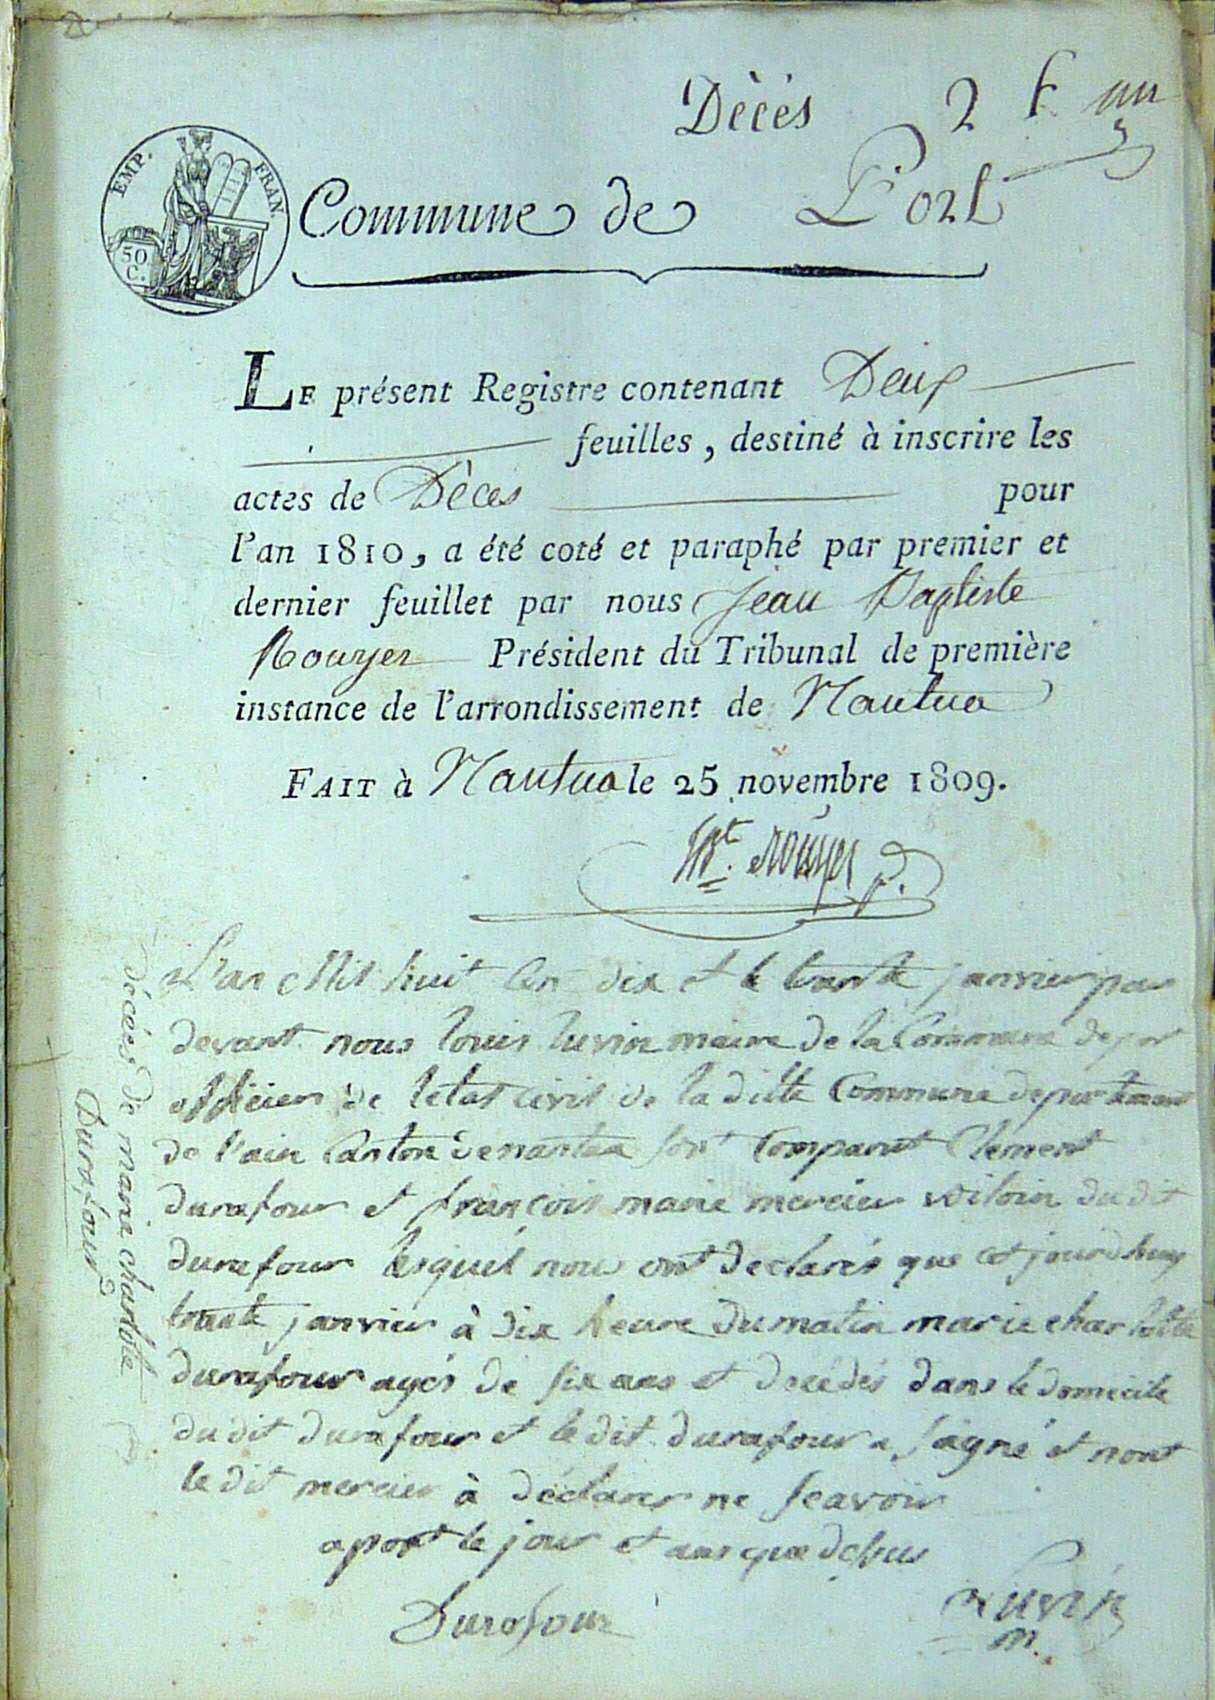 Décès 2 f. un
EMP. FRAN.
50
C.
Commune de Port
LE présent Registre contenant Deux
feuilles, destiné à inscrire les
actes de Décès pour
l'an 1810, a été coté et paraphé par premier et
dernier feuillet par nous Jean Baptiste
Rouyer Président du Tribunal de première
instance de l'arrondissement de Nantua
FAIT à Nantua le 25 novembre 1809.
Jn Bt. Rouyer p.
décées de marie charlotte
Durafour
L'an Mil huit Cen dix et le trante janvier par
devant nous louis luvin maire de la Commune de por
officier de letat civil de la ditte Commune departemant
de l'ain Canton de nantua sont Comparut Clement
durafour et françois marie mercier voisin du dit
durafour lesquel nous ont declarés que cet jourdhuy
trante janvier à dix heure du matin marie charlotte
durafour agés de six ans et decédés dans le domicile
du dit durafour et le dit durafour a signé et nont
le dit mercier à déclarer ne scavoir
a port le jour et ans que desus
Durafour
Luvin
m.